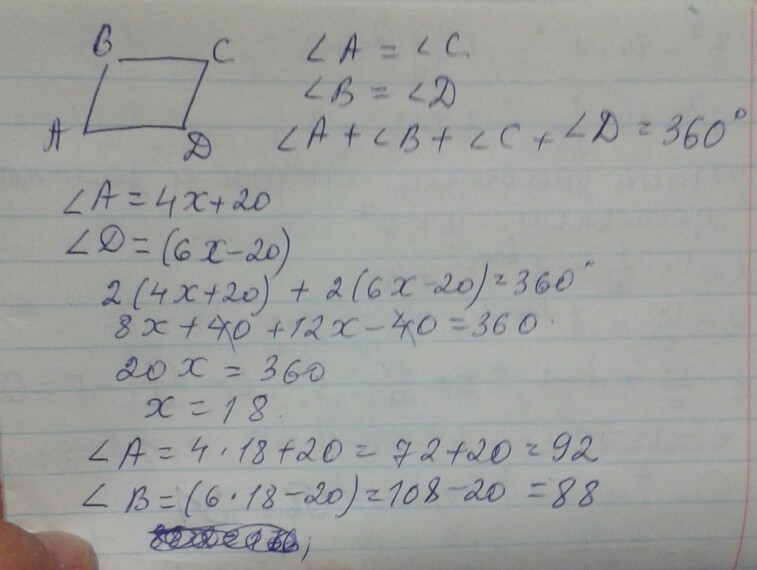 B C ∠A = ∠C
∠B = ∠D
A D ∠A + ∠B + ∠C + ∠D = 360°
∠A = 4x+20
∠D = (6x-20)
2(4x+20) + 2(6x-20) = 360°
8x + 40 + 12x - 40 = 360
20x = 360
x = 18.
∠A = 4·18+20 = 72+20 = 92
∠B = (6·18-20) = 108-20 = 88